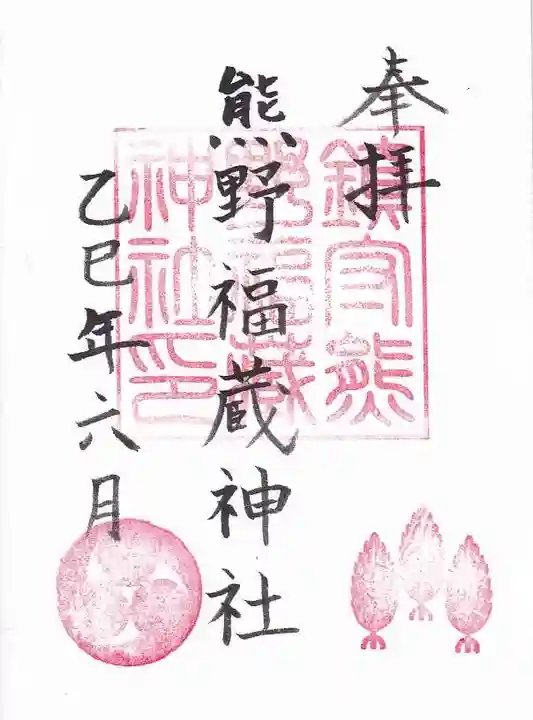 奉拝
熊野福蔵神社
乙巳年六月
鎮守熊
野福蔵
神社印